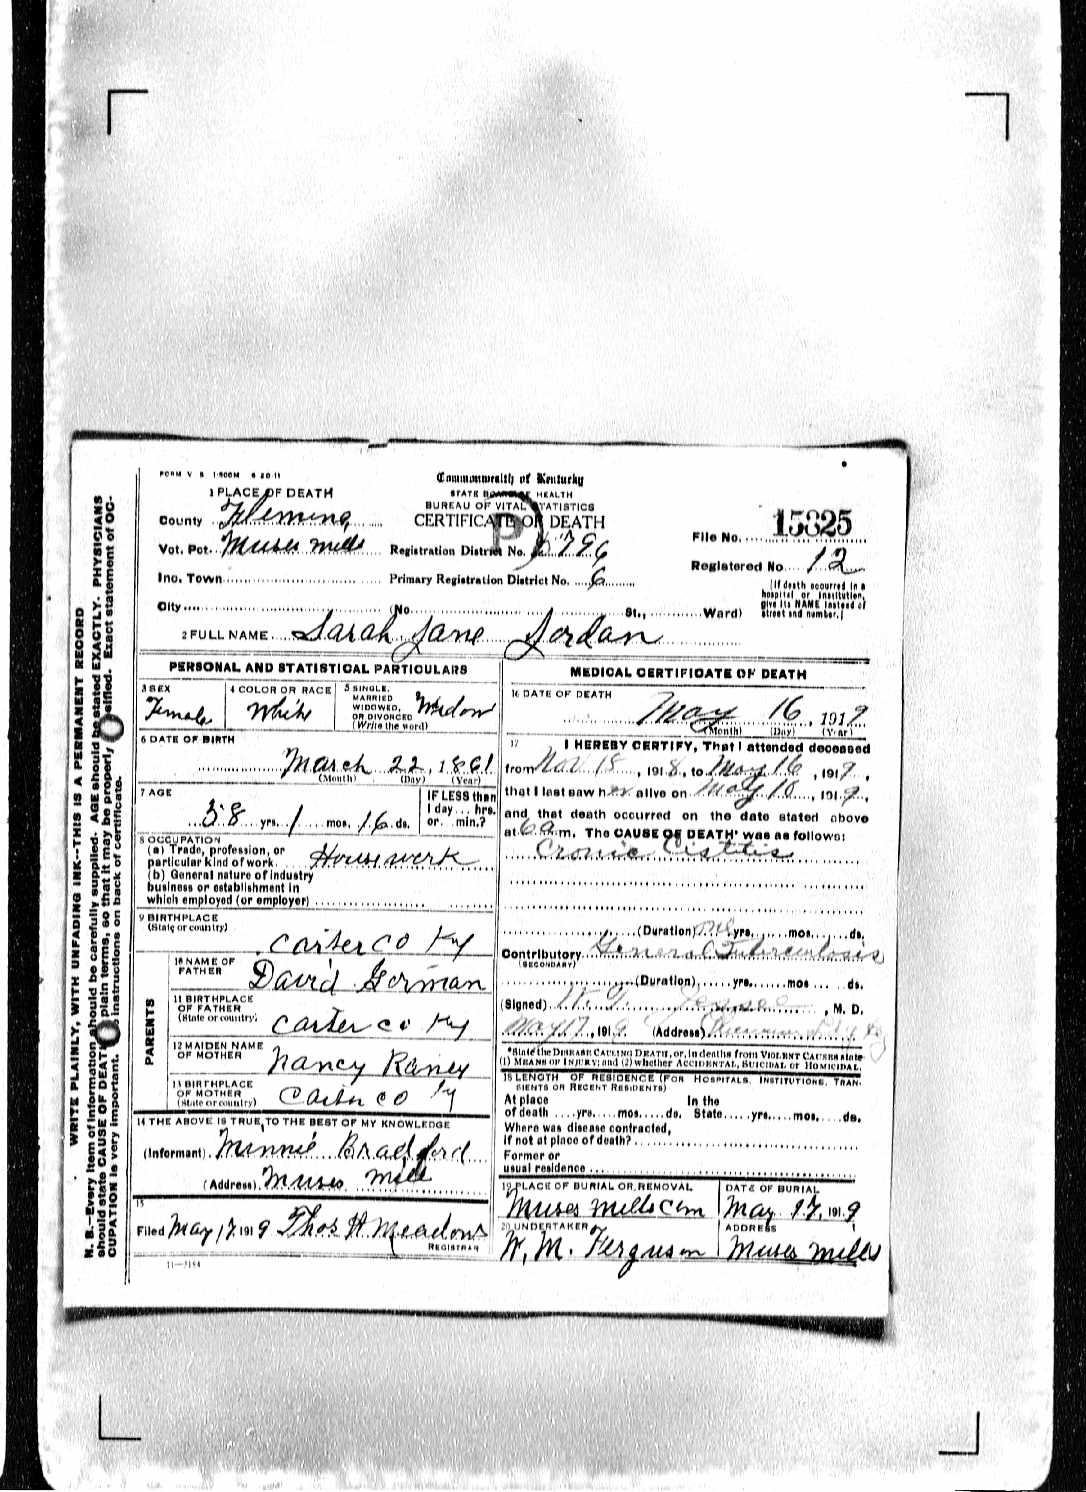 FORM V S 1-500M 6 20 11
Commonwealth of Kentucky
STATE BOARD OF HEALTH
BUREAU OF VITAL STATISTICS
CERTIFICATE OF DEATH
1 PLACE OF DEATH
County Fleming
Vot. Pct. Muses Mills
Registration District No. 796
Inc. Town
Primary Registration District No. 6
File No. 15825
Registered No 12
City (No. St., Ward)
(If death occurred in a
hospital or institution,
give its NAME instead of
street and number.)
2 FULL NAME Sarah Jane Jordan
PERSONAL AND STATISTICAL PARTICULARS
3 SEX
Female
4 COLOR OR RACE
White
5 SINGLE,
MARRIED
WIDOWED,
OR DIVORCED
(Write the word)
Widow
6 DATE OF BIRTH
March 22, 1861
(Month) (Day) (Year)
7 AGE
58 yrs. 1 mos. 16 ds.
IF LESS than
1 day ... hrs.
or ... min.?
8 OCCUPATION
(a) Trade, profession, or
particular kind of work. Housework
(b) General nature of industry
business or establishment in
which employed (or employer)
9 BIRTHPLACE
(State or country)
Carter Co Ky
PARENTS
10 NAME OF
FATHER
David Gorman
11 BIRTHPLACE
OF FATHER
(State or country)
Carter Co Ky
12 MAIDEN NAME
OF MOTHER
Nancy Raney
13 BIRTHPLACE
OF MOTHER
(State or country)
Carter Co Ky
14 THE ABOVE IS TRUE TO THE BEST OF MY KNOWLEDGE
(Informant) Minnie Bradford
(Address) Muses Mill
15
Filed May 17, 1919 Thos H Meadows
REGISTRAR
11-3184
MEDICAL CERTIFICATE OF DEATH
16 DATE OF DEATH
May 16, 1919
(Month) (Day) (Year)
17 I HEREBY CERTIFY, That I attended deceased
from Nov 18, 1918, to May 16, 1919,
that I last saw her alive on May 10, 1919,
and that death occurred on the date stated above
at 6 a. m. The CAUSE OF DEATH* was as follows:
Cronic Cistitis
(Duration) one yrs. mos. ds.
Contributory General Tuberculosis
(SECONDARY)
(Duration) yrs. mos ds.
(Signed) , M. D.
May 17, 191 (Address)
*State the DISEASE CAUSING DEATH, or, in deaths from VIOLENT CAUSES state
(1) MEANS OF INJURY; and (2) whether ACCIDENTAL, SUICIDAL or HOMICIDAL.
18 LENGTH OF RESIDENCE (FOR HOSPITALS, INSTITUTIONS, TRAN-
SIENTS OR RECENT RESIDENTS)
At place In the
of death yrs. mos. ds. State yrs. mos. ds.
Where was disease contracted,
if not at place of death?
Former or
usual residence
19 PLACE OF BURIAL OR REMOVAL
Muses Mills Cem
DATE OF BURIAL
May 17, 1919
20 UNDERTAKER
W. M. Ferguson
ADDRESS
Muses Mills
WRITE PLAINLY, WITH UNFADING INK--THIS IS A PERMANENT RECORD
N. B.--Every item of information should be carefully supplied. AGE should be stated EXACTLY. PHYSICIANS
should state CAUSE OF DEATH in plain terms, so that it may be properly classified. Exact statement of OC-
CUPATION is very important. See instructions on back of certificate.